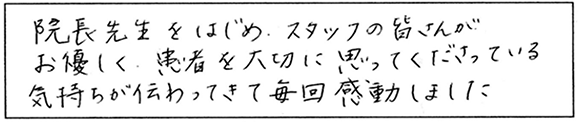 院長先生をはじめ、スタッフの皆さんが
お優しく、患者を大切に思ってくださっている
気持ちが伝わってきて毎回感動しました